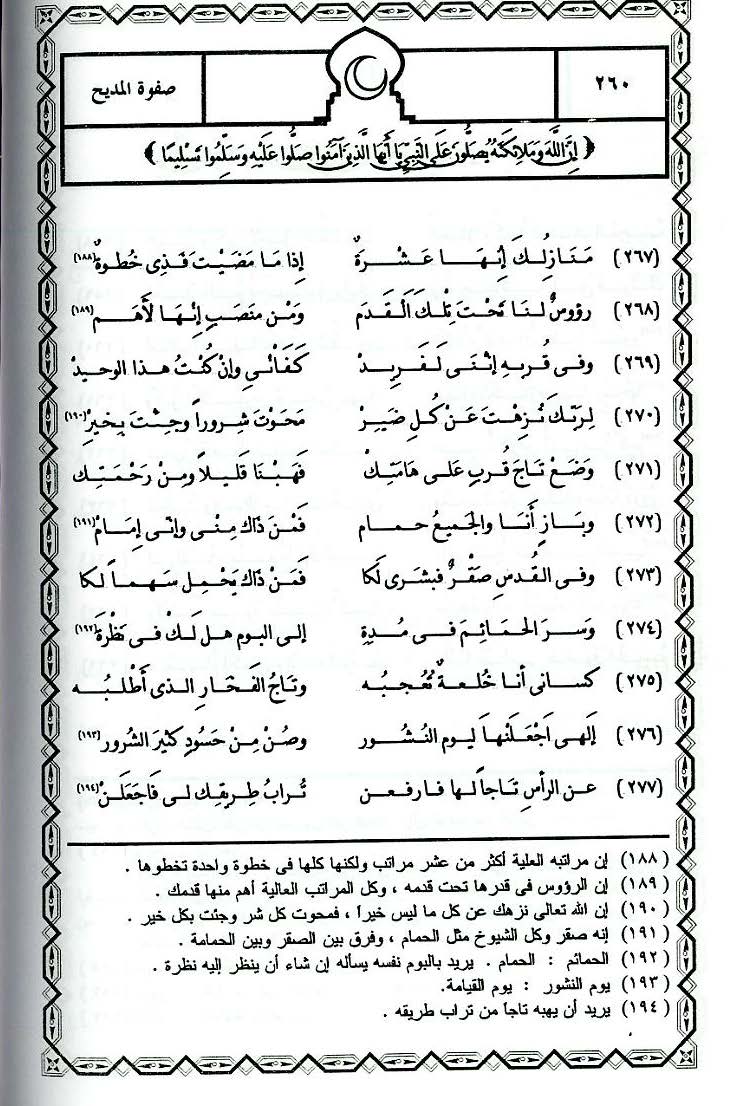 ٢٦٠
صفوة المديح
﴿ إِنَّ اللَّهَ وَمَلَائِكَتَهُ يُصَلُّونَ عَلَى النَّبِيِّ يَا أَيُّهَا الَّذِينَ آمَنُوا صَلُّوا عَلَيْهِ وَسَلِّمُوا تَسْلِيمًا ﴾
(٢٦٧) مَنَازِلُكَ إِنهَا عَشْرَةٌ إِذا مَا مَضَيْتَ فَذِى خُطوةٌ(١٨٨)
(٢٦٨) رؤوسٌ لنَا تَحْتَ تِلْكَ الْقَدَم وَمْن منصَبٍ إنهَا لأَهَم(١٨٩)
(٢٦٩) وفى قُربهِ إنْنَى لَفَرِيدْ كَفَانْي وإنْ كُنْتُ هذا الوحيدْ
(٢٧٠) لِرَبّكَ نُزِهْتَ عَنْ كُلِ ضَيرْ مَحَوْتَ شروراً وجئتَ بِخيرِ(١٩٠)
(٢٧١) وَضَعْ تاجَ قُربٍ عَلى هَامتِكْ فَهبْنَا قَليلاً ومِنْ رَحْمَتِك
(٢٧٢) وبَازٍ أَنَا والجَميعُ حمام فَمْنَ ذَاك مِنى وإنْى إمَامْ(١٩١)
(٢٧٣) وفى القُدسِ صَقْرٌ فبشرَى لَكا فَمَنْ ذاكَ يَحْمِل سَهماً لكا
(٢٧٤) وَسرَ الحَمائِمَ فى مُدةٍ إلى البوم هل لَكْ فى نظْرةَ(١٩٢)
(٢٧٥) كسانى أنا خُلعةٌ تُعجبُه وتاجُ الفَخَارِ الذى أَطْلبُه
(٢٧٦) إلهى اجْعَلَنْهاَ ليوم النُشور وصُنْ مِنْ حَسُودٍ كثيرَ الشرور(١٩٣)
(٢٧٧) عن الرأسِ تَاجاً لها فارفعن تُرابُ طرِيقِك لى فَاجعَلَنْ(١٩٤)
(١٨٨) إن مراتبه العلية أكثر من عشر مراتب ولكنها كلها فى خطوة واحدة تخطوها .
(١٨٩) إن الرؤوس فى قدرها تحت قدمه ، وكل المراتب العالية أهم منها قدمك .
(١٩٠) إن الله تعالى نزهك عن كل ما ليس خيراً ، فمحوت كل شر وجئت بكل خير .
(١٩١) إنه صقر وكل الشيوخ مثل الحمام ، وفرق بين الصقر وبين الحمامة .
(١٩٢) الحمائم : الحمام . يريد بالبوم نفسه يسأله إن شاء أن ينظر إليه نظرة .
(١٩٣) يوم النشور : يوم القيامة.
(١٩٤) يريد أن يهبه تاجاً من تراب طريقه .